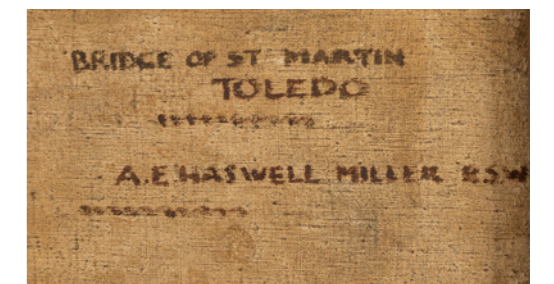 BRIDGE OF ST MARTIN
TOLEDO
A.E HASWELL MILLER RSW